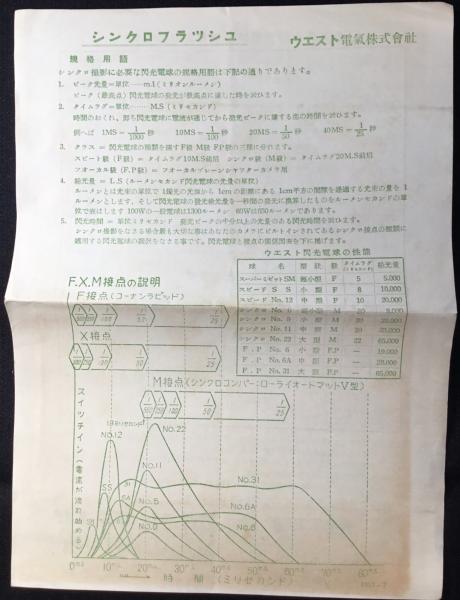 シンクロフラッシユ
ウエスト電氣株式會社
規格用語
シンクロ撮影に必要な閃光電球の規格用語は下記の通りであります。
1. ピーク光量=単位……m.l (ミリオンルーメン)
ピーク(最高点) 閃光電球の発光が最高点に達した時を云ひます。
2. タイムラグ=単位…… M.S (ミリセカンド)
時間のおくれ、即ち閃光電球に電流が通じてから発光ピークに達する迄の時間を云ひます。
例へば 1MS=1/1000秒 10MS=1/100秒 20MS=1/50秒 40MS=1/25秒
3. クラス = 閃光電球の種類を表す F級 M級 F.P級の三種に分れます。
スピード級 (F級) = タイムラグ10M.S前后 シンクロ級 (M級) = タイムラグ20M.S前后
フオーカル級 (F.P級) = フオーカルプレーンシヤツターカメラ用
4. 総光量 = L.S (ルーメンセカンド閃光電球の光量の単位)
ルーメンとは光束の単位で1燭光の光源から1cmの距離にある1cm平方の間隙を通過する光束の量を1
ルーメンとします、そして閃光電球の
位で表はします 100Wの一般電球は1300ルーメン 60Wは650ルーメンであります。
5. 閃光時間 = 単位ミリセカンド
シンクロ撮影をなさる場合最も大切な事はあなたのカメラにビルトインされてあるシンクロ接点の種類に
適用する閃光電球の選択をなさる事です。閃光電球と接点の関係図表を下に掲げます。
ウエスト閃光電球の性能
球 名 型 状 級 タイムラグ(ミリセカンド) 総光量
スーパーミゼットSM 超小型 F 5 5,000
スピード S S 小 型 F 8 10,000
スピード No.12 中 型 F 10 20,000
シンクロ No. 20
シンクロ 小 型 M 20
シンクロ No.11 中 型 M 20 33,000
シンクロ No.22 大 型 M 22 65,000
F.P No. 6 小 型 F.P — 19,000
F.P No. 6A 中型 F.P — 28,000
F.P No. 31 大型 F.P — 65,000
F.X.M接点の説明
F接点(コーナンラピッド)
1/50 1/25
X接点
1/50 1/25
M接点 (シンクロコンパー:ローライオートマットV型)
1/100 1/50 1/25
スイッチイン(電流が流れ始める)
No.12
No.22
No.11
No.31
SS
SM
6A
No.5
No.6A
No.6
0 10 20 30 40 50 60 70 80
時 間 (ミリセカンド)